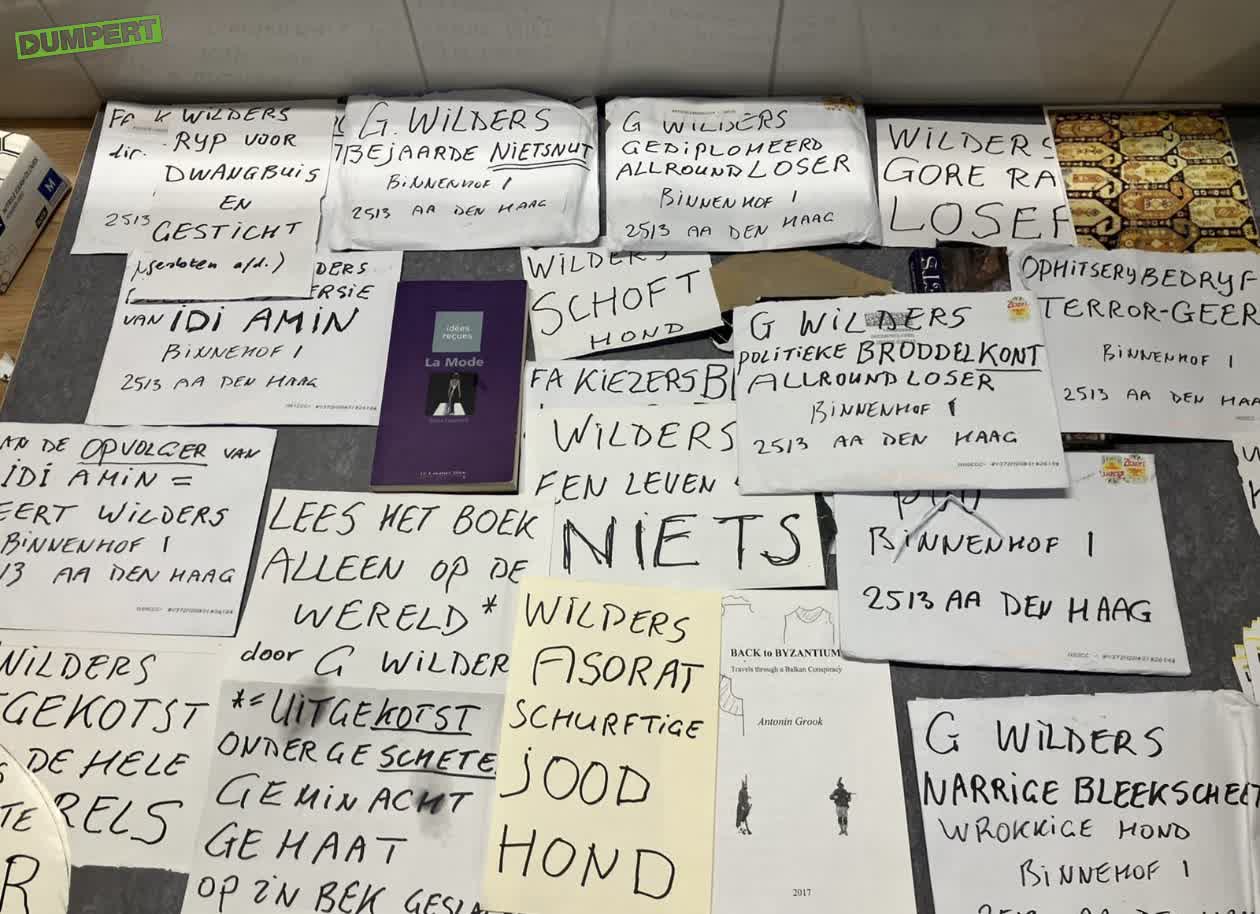 DUMPERT
M
FA K WILDERS
dir.
RYP VOOR
DWANGBUIS
EN
GESTICHT
(gesloten afd.)
2513
G. WILDERS
BEJAARDE NIETSNUT
BINNENHOF 1
2513 AA DEN HAAG
G WILDERS
GEDIPLOMEERD
ALLROUND LOSER
BINNENHOF 1
2513 AA DEN HAAG
WILDERS
GORE RA
LOSER
DERS
ERSIE
VAN IDI AMIN
BINNEHOF 1
2513 AA DEN HAAG
idées
reçues
La Mode
WILDERS
SCHOFT
HOND
FA KIEZERSB
OPHITSERYBEDRYF
TERROR-GEER
BINNENHOF 1
2513 AA DEN HAA
G WILDERS
POLITIEKE BRODDELKONT
ALLROUND LOSER
BINNENHOF 1
2513 AA DEN HAAG
WILDERS
EEN LEVEN
NIETS
AN DE OPVOLGER VAN
IDI AMIN =
EERT WILDERS
BINNENHOF 1
13 AA DEN HAAG
LEES HET BOEK
ALLEEN OP DE
WERELD *
door G WILDER
*= UITGEKOTST
ONDERGESCHETE
GEMINACHT
GEHAAT
OP Z'N BEK GESLA
BINNENHOF 1
2513 AA DEN HAAG
WILDERS
GEKOTST
DE HELE
RELS
TE
R
WILDERS
ASORAT
SCHURFTIGE
JOOD
HOND
BACK to BYZANTIUM
Travels through a Balkan Conspiracy
Antonin Grook
2017
G WILDERS
NARRIGE BLEEKSCHEET
WROKKIGE HOND
BINNENHOF 1